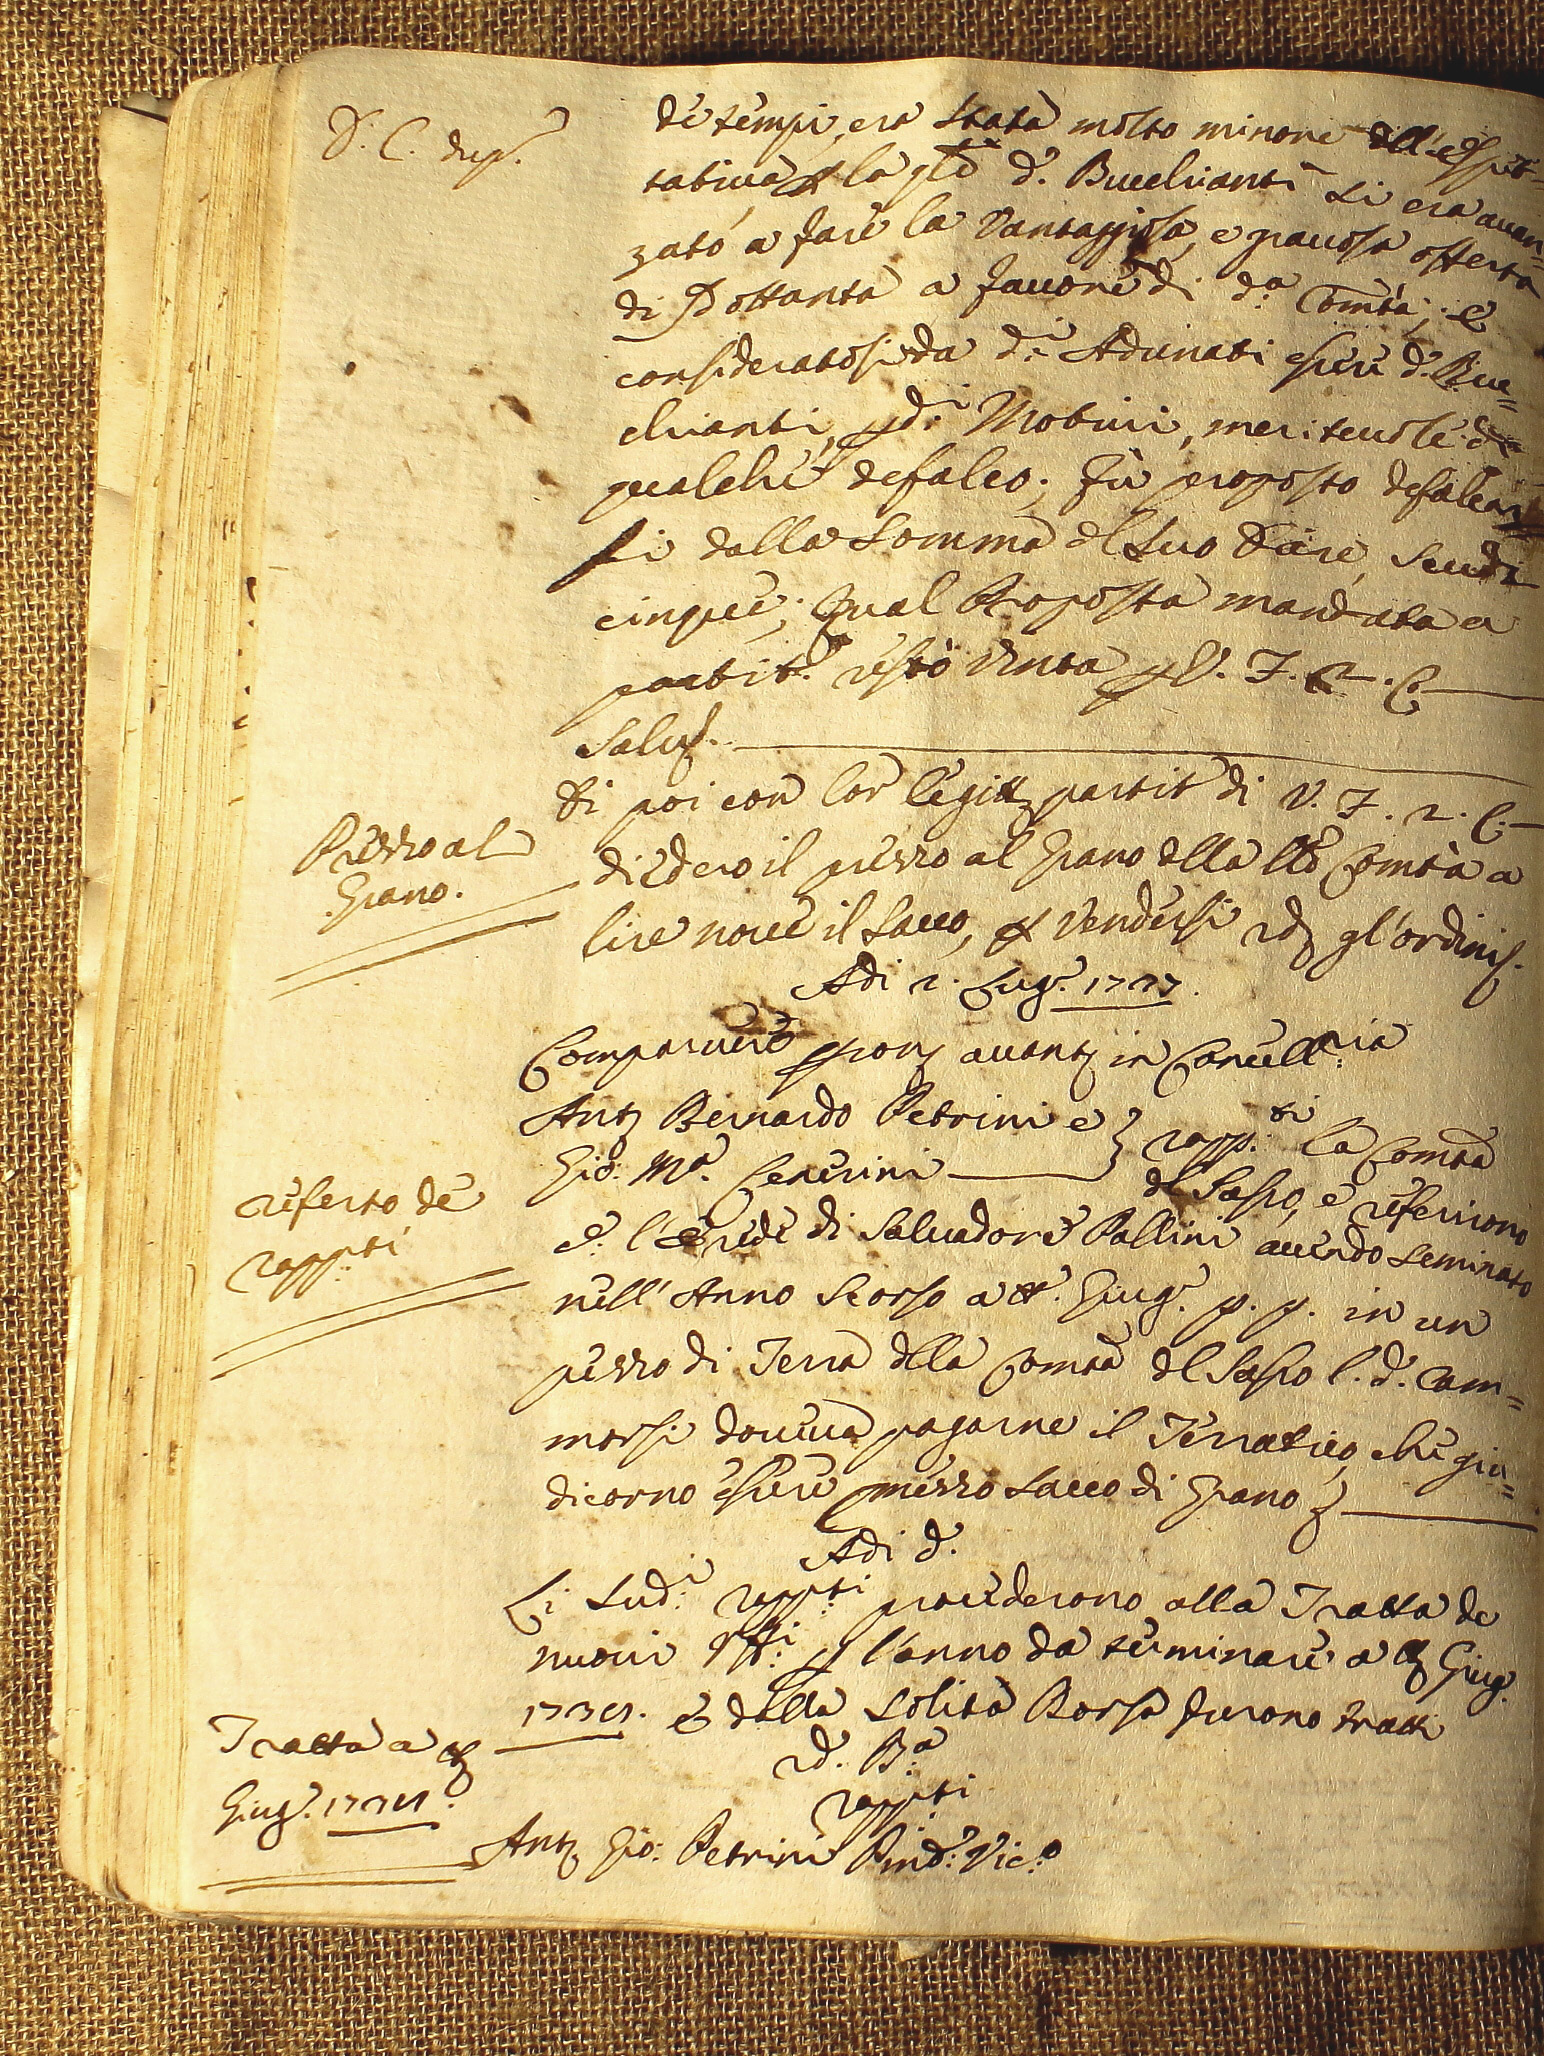 D. C. sup.
de tempi, era stata molto minore dell'espet=
tativa p la qle d. Bucchianti si era avan=
zato a fare la vantaggiosa, e gravosa offerta
di ottanta a favore di da Comtà; e
consideratosi da di Adunati essere d. Buc=
chianti, p di Motivi, meritevole di
qualche defalco; fù proposto defalcar
si dalla somma del suo Dare, scudi
cinque; qual Proposta mandata a
partit. restò vinta p V. F. 2. C.
Salus.
Di poi con lor legitt partit di V. F. 2. C.
Prezzo al
Grano.
diedero il prezzo al Grano della Comtà a
lire nove il sacco, p vendersi gl'ordini.
Adi 2. Lug. 1737.
Comparvero avanti in Cancellria
Ant Bernardo Petrini e } rapp.ti la Comtà
Gio: Ma. Cenerini del Sasso, e referirono
referto de
rapp:ti
e: l'Erede di Salvadore Pallini avendo seminato
nell'Anno scorso a tt. Giug. p. p. in un
pezzo di Terra della Comtà del Sasso l. d. Cam=
morsi doveva pagarne il Terratico, che giu=
dicorno essere mezzo sacco di Grano
Adi d.
Li Sud:i rapp:ti procederono alla Tratta de
nuovi Off:i p l'anno da terminare a tt Giug.
1738. e dalla solita Borsa furono tratti
Tratta a tt
Giug. 1738.
d. Ba
rapp:ti
Ant Gio: Petrini Pind: Vic:o